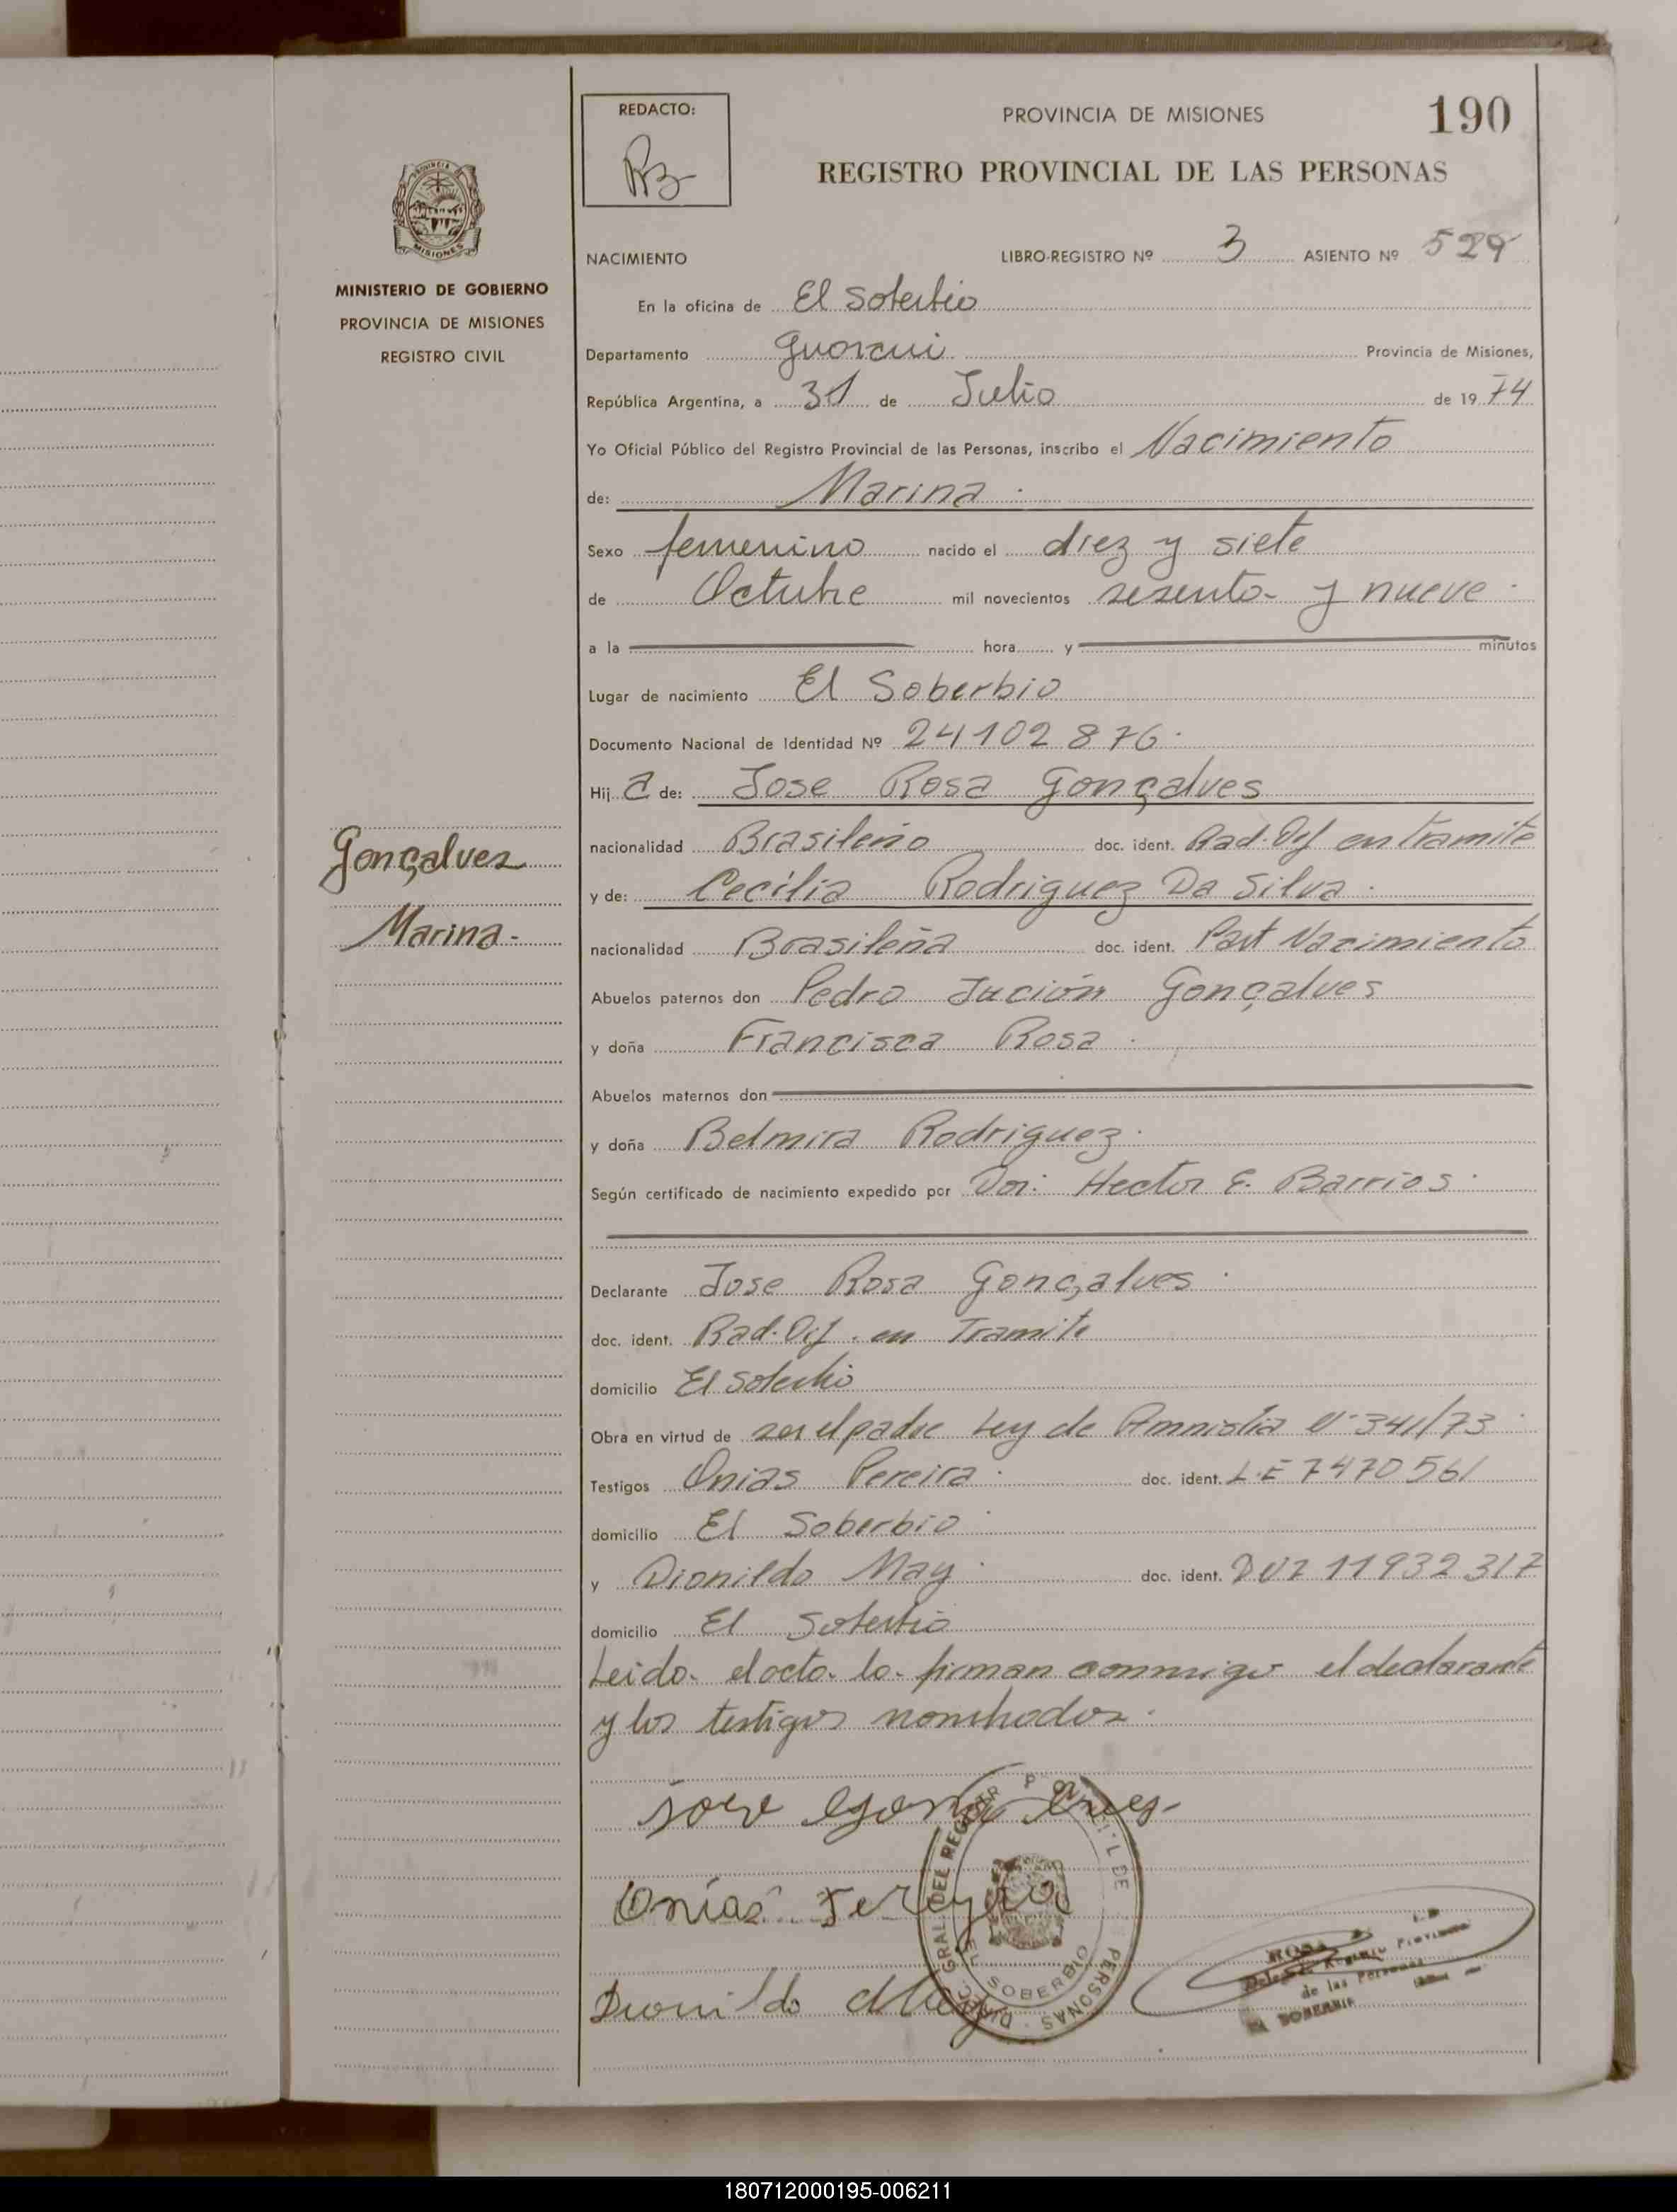 REDACTO:
PROVINCIA DE MISIONES
190
REGISTRO PROVINCIAL DE LAS PERSONAS
PROVINCIA DE
MISIONES
MINISTERIO DE GOBIERNO
PROVINCIA DE MISIONES
REGISTRO CIVIL
NACIMIENTO LIBRO-REGISTRO Nº 3 ASIENTO Nº 529
En la oficina de El Soberbio
Departamento Guarani Provincia de Misiones,
República Argentina, a 31 de Julio de 1974
Yo Oficial Público del Registro Provincial de las Personas, inscribo el Nacimiento
de: Marina.
Sexo femenino nacido el diez y siete
de Octubre mil novecientos sesenta y nueve.
a la hora y minutos
Lugar de nacimiento El Soberbio
Documento Nacional de Identidad Nº 24102876.
Hija de: Jose Rosa Gonçalves
nacionalidad Brasileño doc. ident. Rad. Def en tramite
Gonçalvez
y de: Cecilia Rodriguez Da Silva.
Marina-
nacionalidad Brasileña doc. ident. Part Nacimiento
Abuelos paternos don Pedro Gonçalves
y doña Francisca Rosa.
Abuelos maternos don
y doña Belmira Rodriguez.
Según certificado de nacimiento expedido por Hector E. Barrios.
Declarante Jose Rosa Gonçalves.
doc. ident. Rad. Def. en Tramite
domicilio El Soberbio
Obra en virtud de ser el padre Ley de Amnistia Nº 341/73.
Testigos Onias Pereira. doc. ident. L.E 7470561
domicilio El Soberbio.
y Dionildo May. doc. ident. 11932317
domicilio El Soberbio
Leido el acto lo firman conmigo el declarante
y los testigos nombrados.
Onias
Dionildo May
EL SOBERBIO
de las Personas
180712000195-006211